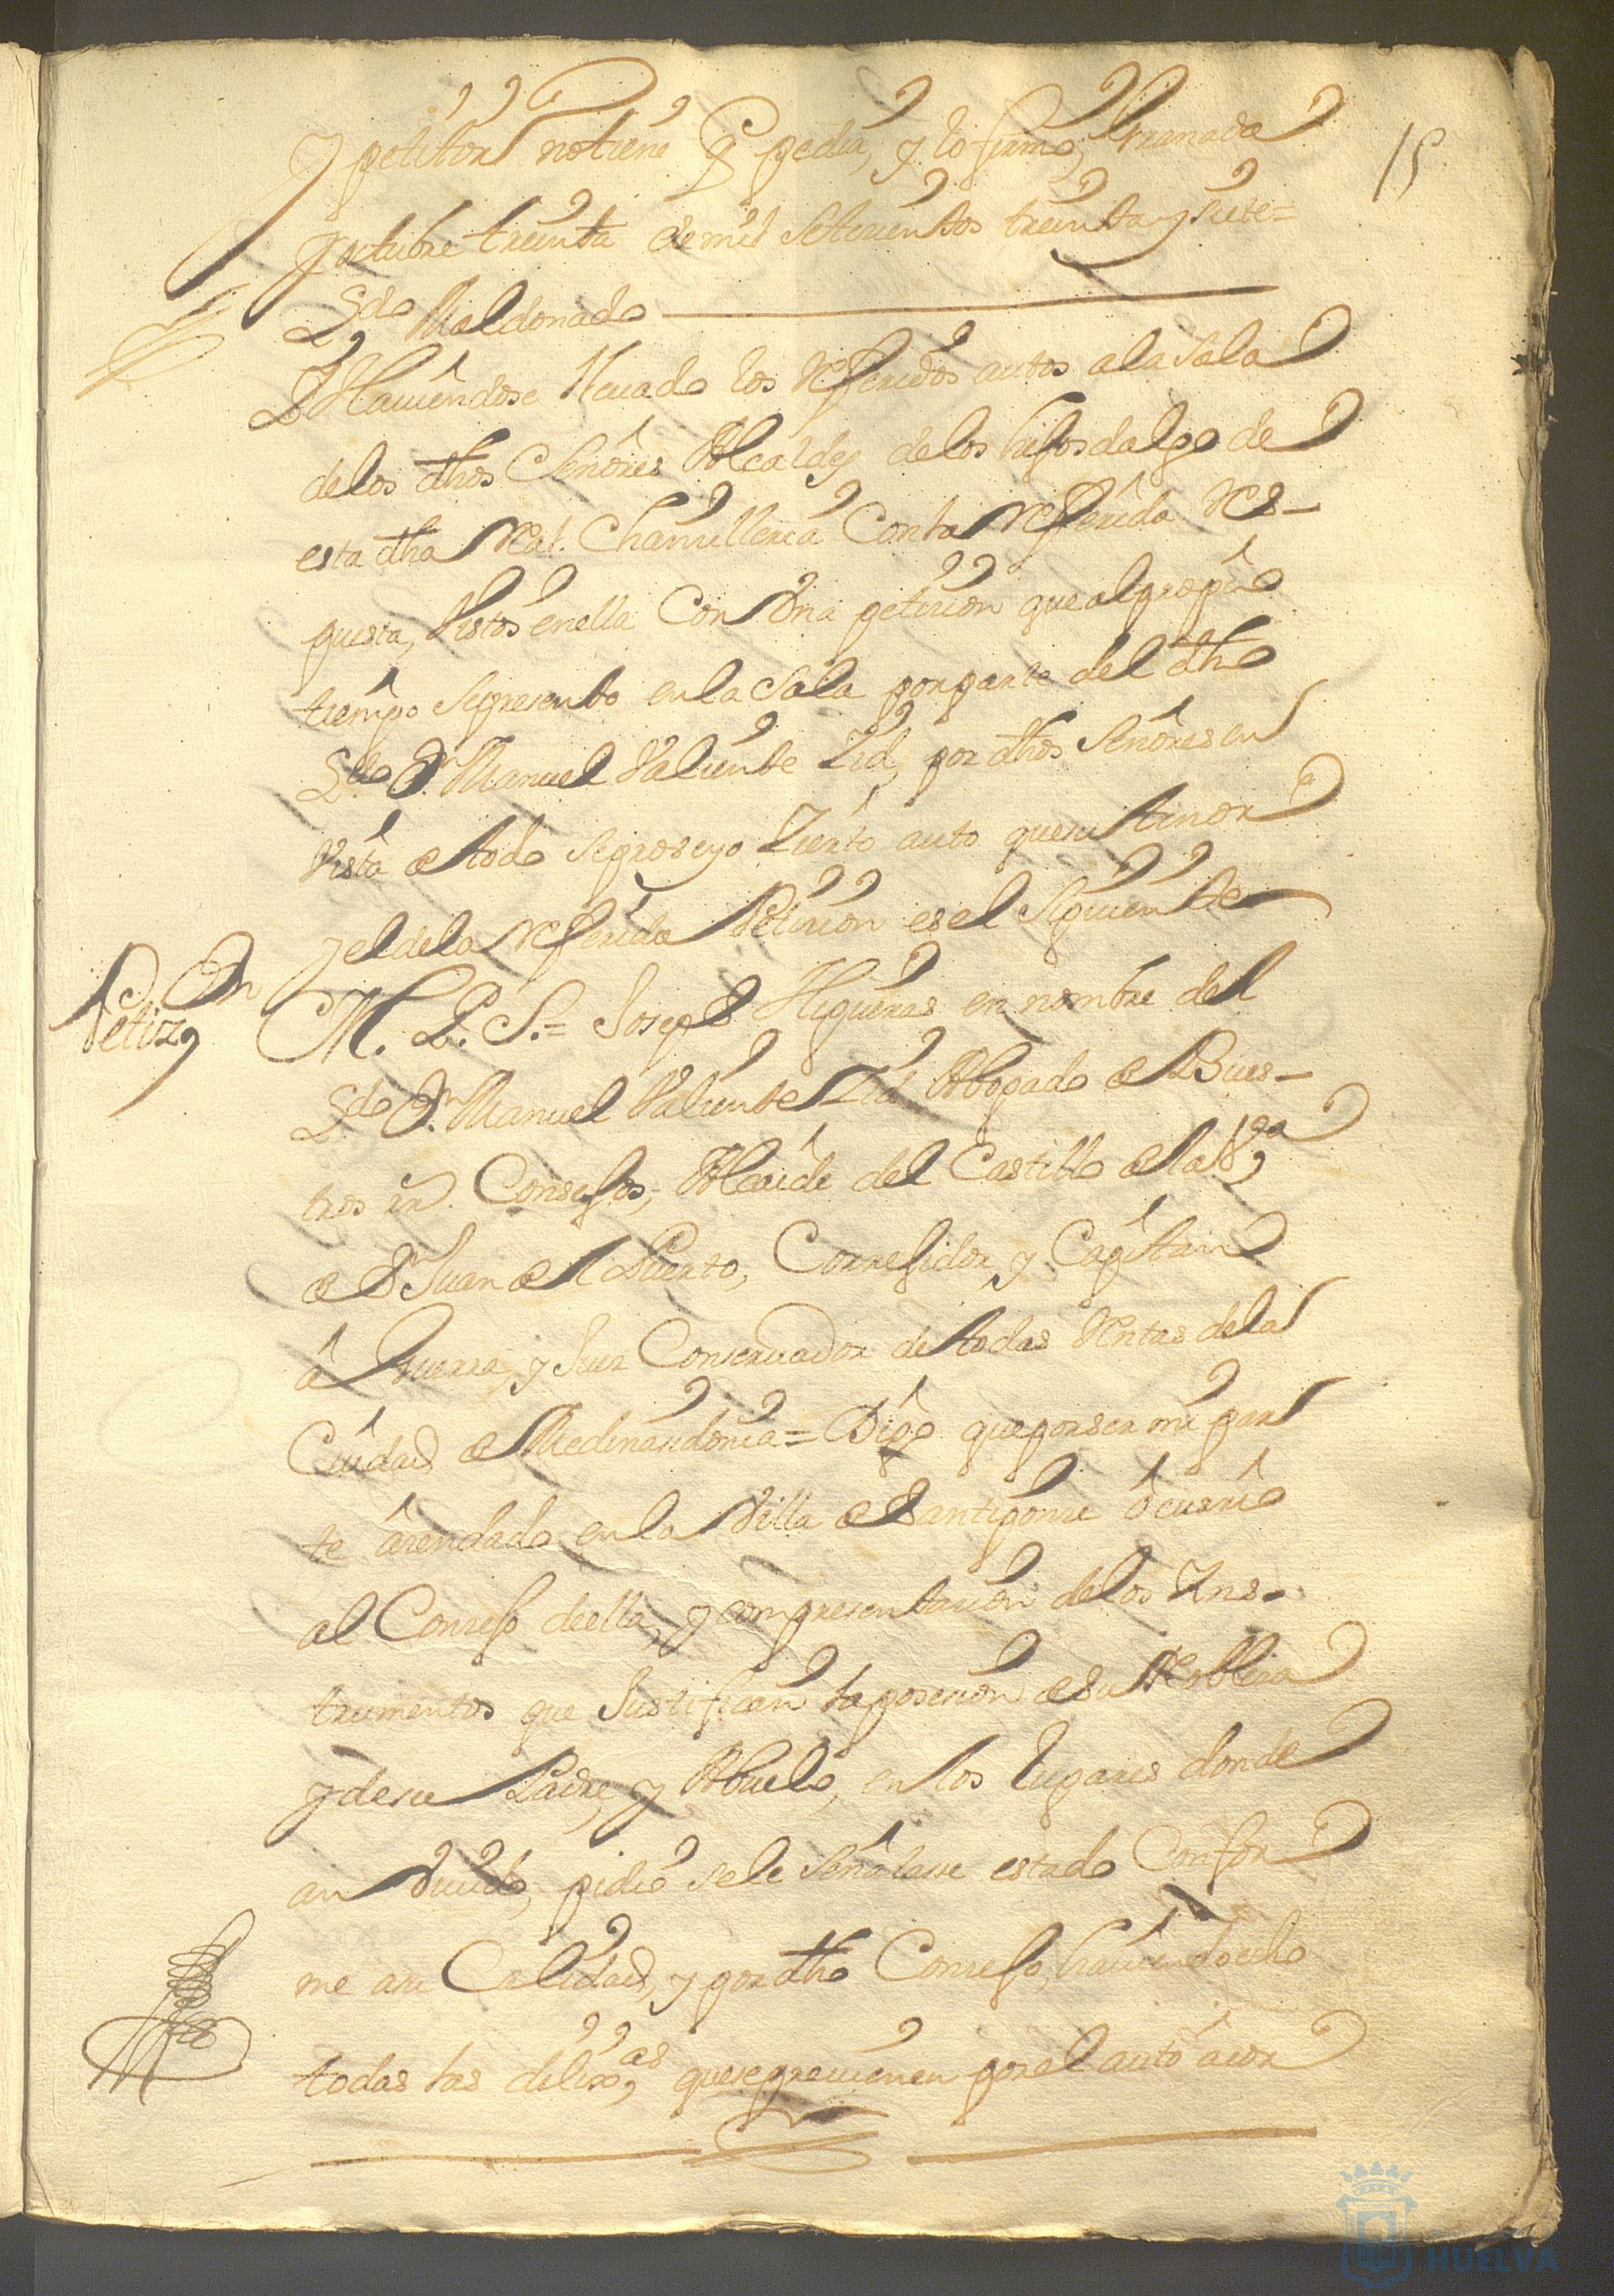 15
y petition no tiene q pedia, y lo firmo, Granada
y octubre treinta de mil setecientos treinta y siete=
Lzdo Maldonado
Y Hauiendose lleuado los referidos autos a la sala
de los dhos Señores Alcaldes de los hijosdalgo de
esta dha Real. Chanzilleria Con la referida res-
puesta, Vistos en ella Con Vna petizion que al propio
tiempo se presento en la sala por parte del dho
Lzdo Dn Manuel Valiente Zid, por dhos Señores en
Vista de todo se proveyo Zierto auto que su tenor
y el de la referida Petizion es el siguiente
Petizon
M. P. S.= Joseph Higueras en nombre del
Lzdo Dn Manuel Valiente Zid Abogado de Vues-
tros rs. Consejos, Alcaide del Castillo de la Va
de Sn Juan del Puerto, Correjidor, y Capitan
â Guerra, y Juez Conseruador de todas Rentas de la
Ciudad de Medinasidonia= Digo que por ser mi par
te âuendado en la Villa de Santiponze ôcurrio
al Consejo de ella, y con presentazion de los Ins-
trumentos que Justifican la posesion de su Nobleza
y de su Padre, y Abuelo, en los lugares donde
an Viuido, pidio se le señalase estado Confor
me a su Calidad, y por dho Consejo, hauiendo echo
todas las dilixas, que se preuienen por el auto acor
HUELVA